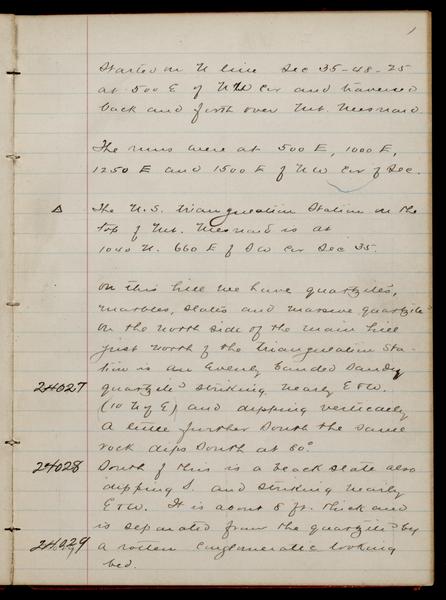 1
Started on N line Sec 35-48-25
at 500 E of NW Cor and traversed
back and forth over Mt. Mesnard.
The runs were at 500 E, 1000 E,
1250 E and 1500 E of NW Cor of Sec.
△ The U.S. Triangulation Station on the
top of Mt. Mesnard is at
1040 N. 660 E of SW Cor Sec 35.
On this hill we have quartzites,
marbles, slates and massive quartzite
On the north side of the main hill
just north of the Triangulation Sta-
tion is an Evenly banded Sandy
24027 quartzite striking nearly E & W.
(10 N of E) and dipping vertically
A little further South the same
rock dips South at 80°
24028 South of this is a black slate also
dipping S and striking nearly
E & W. It is about 8 ft. thick and
is separated from the quartzite by
24029 a rotten Conglomeratic looking
bed.